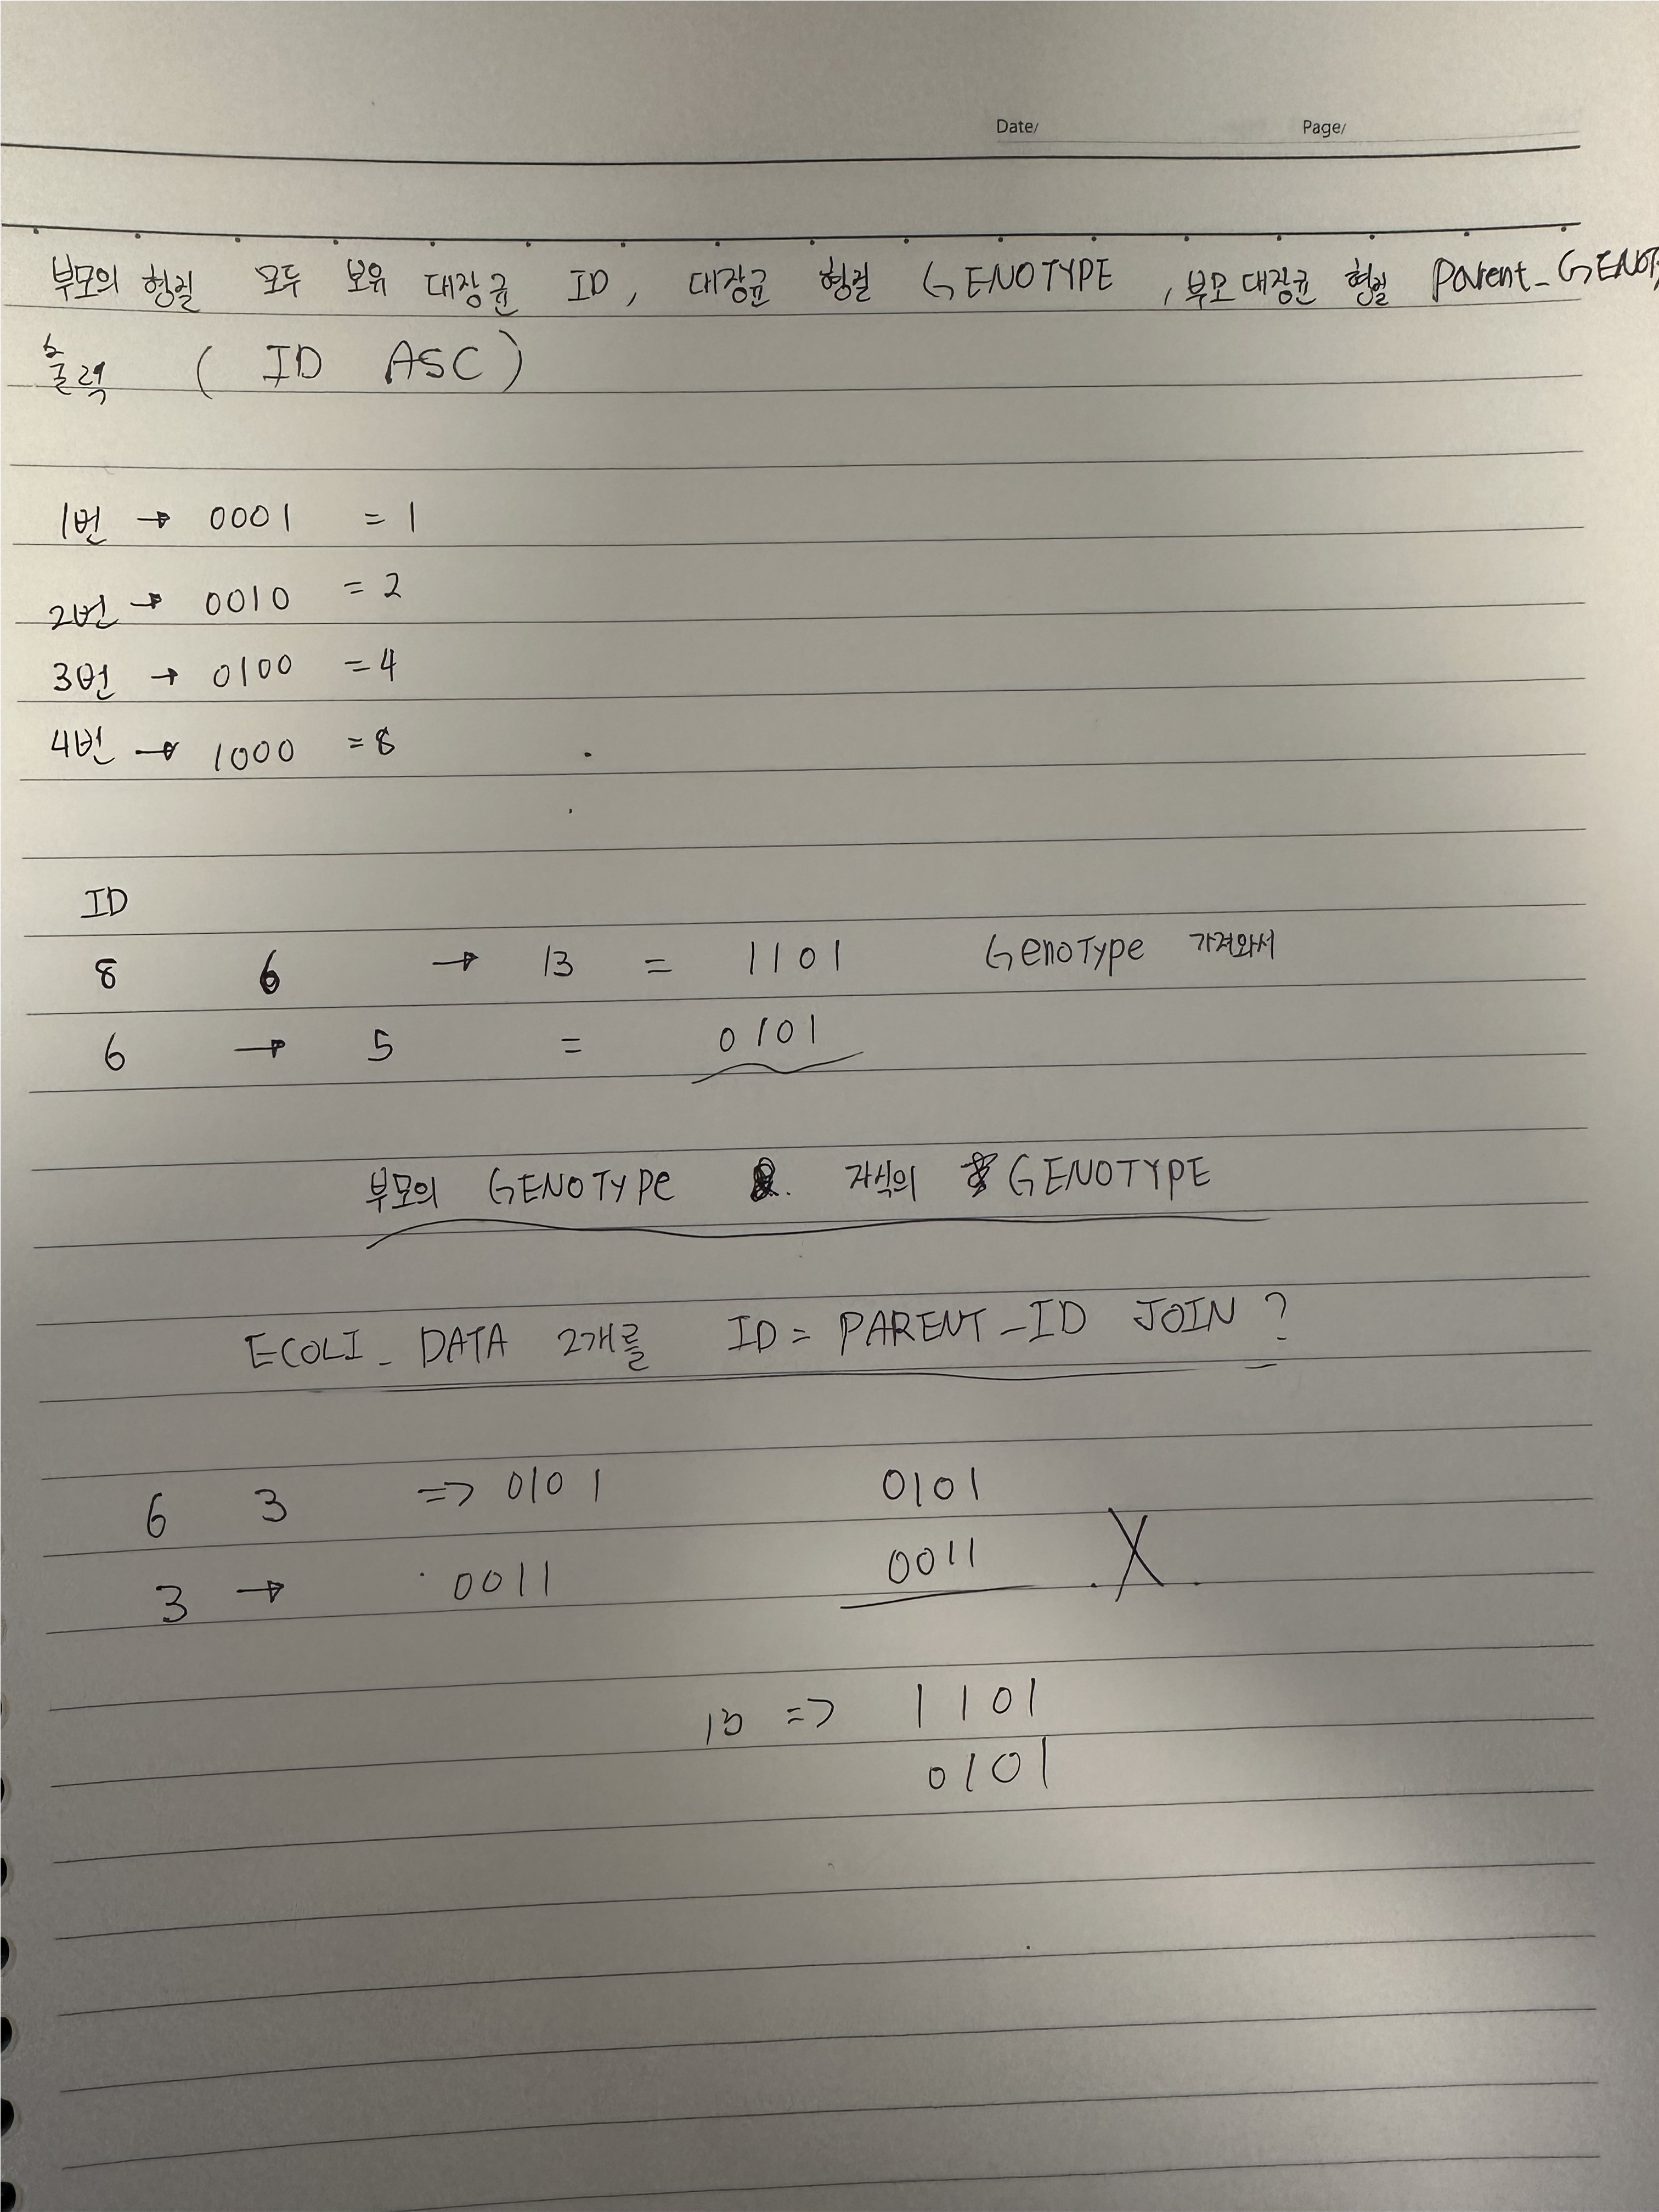 Date/ Page/
부모의 형질 모두 보유 대장균 ID, 대장균 형질 GENOTYPE, 부모대장균 형질 Parent_GENOT
출력 ( ID ASC )
1번 → 0001 = 1
2번 → 0010 = 2
3번 → 0100 = 4
4번 → 1000 = 8
ID
8 6 → 13 = 1101 GenoType 가져와서
6 → 5 = 0101
부모의 GENOTYPe & 자식의 GENOTYPE
ECOLI_DATA 2개를 ID = PARENT_ID JOIN ?
6 3 => 0101 0101
3 → 0011 0011 X
13 => 1101
0101